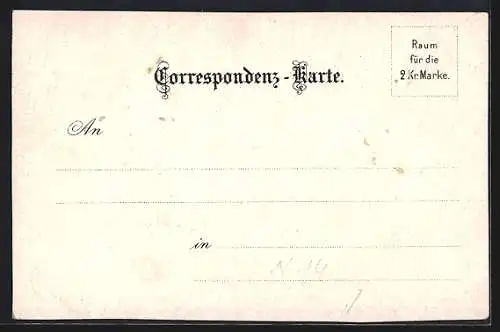 Raum
für die
2 Kr. Marke.
Correspondenz-Karte.
An
in
N 14